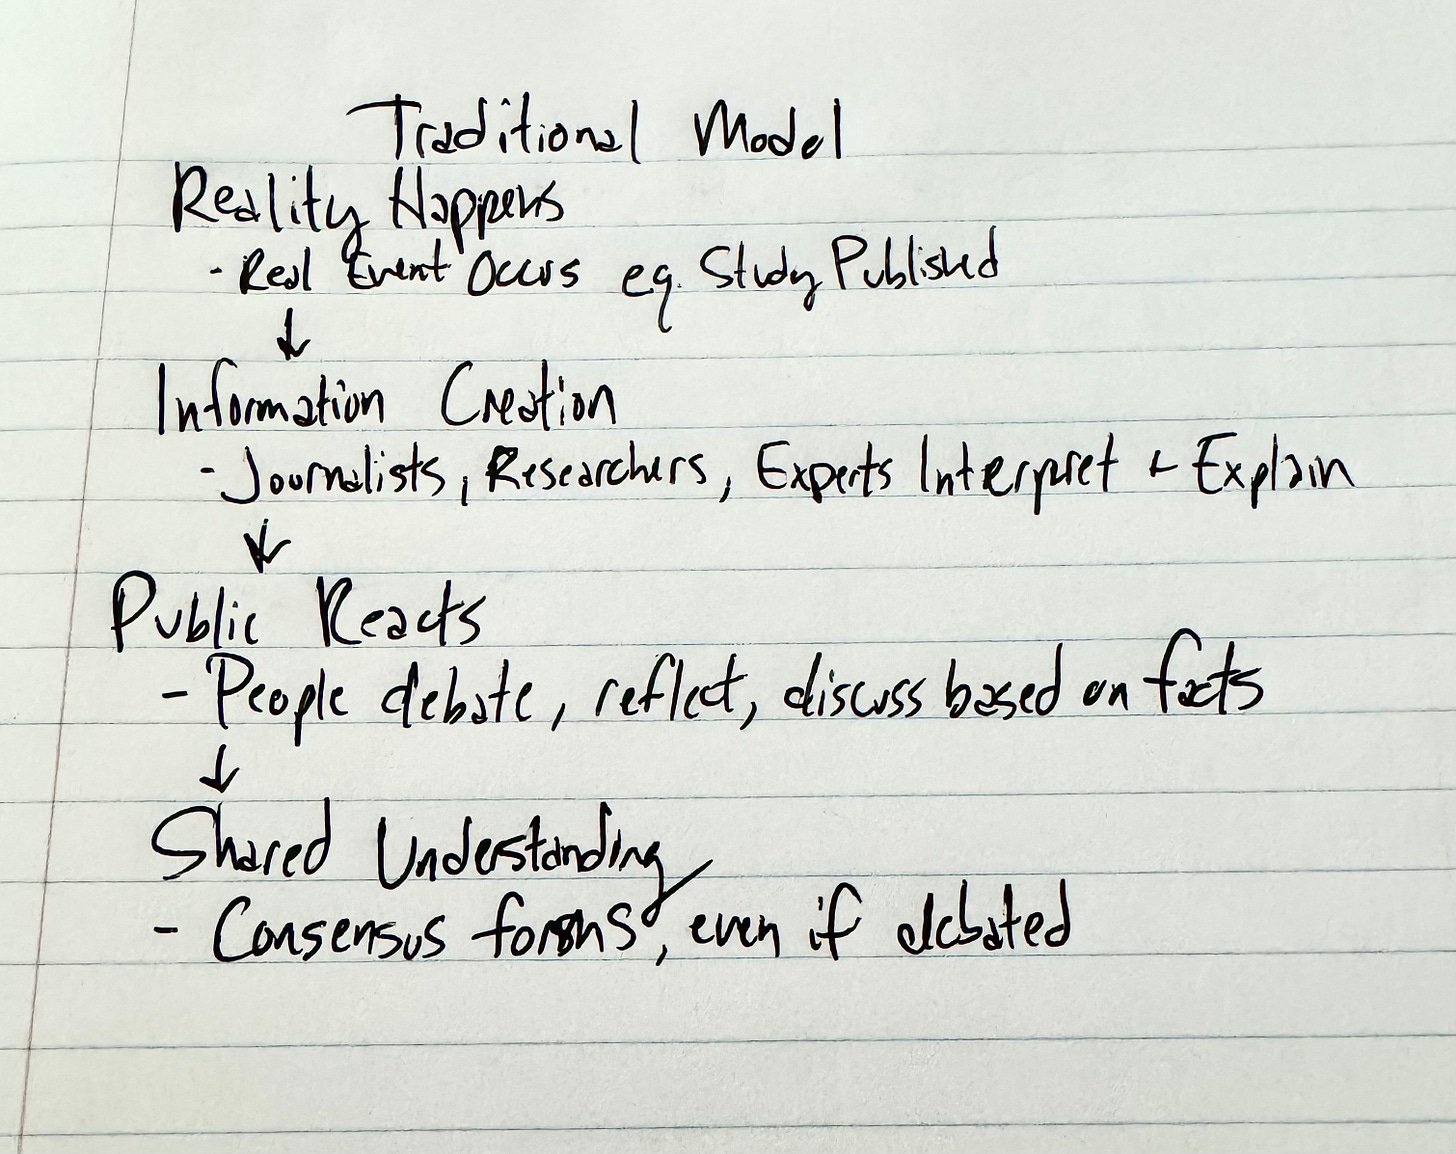 Traditional Model
Reality Happens
- Real Event Occurs eg. Study Published
↓
Information Creation
- Journalists, Researchers, Experts Interpret + Explain
↓
Public Reacts
- People debate, reflect, discuss based on facts
↓
Shared Understanding
- Consensus forms, even if debated